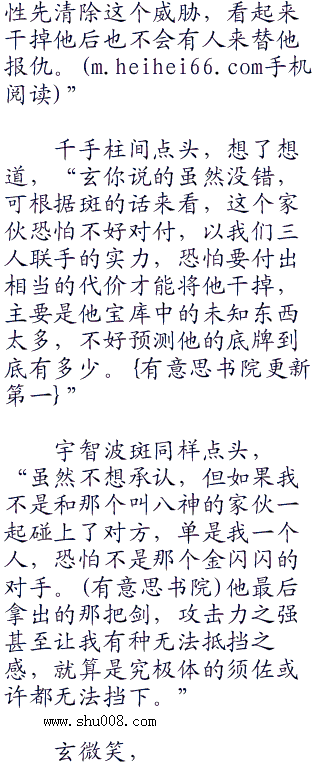 性先清除这个威胁，看起来
干掉他后也不会有人来替他
报仇。(m.heihei66.com手机
阅读)”
千手柱间点头，想了想
道，“玄你说的虽然没错，
可根据斑的话来看，这个家
伙恐怕不好对付，以我们三
人联手的实力，恐怕要付出
相当的代价才能将他干掉，
主要是他宝库中的未知东西
太多，不好预测他的底牌到
底有多少。{有意思书院更新
第一}”
宇智波斑同样点头，
“虽然不想承认，但如果我
不是和那个叫八神的家伙一
起碰上了对方，单是我一个
人，恐怕不是那个金闪闪的
对手。(有意思书院)他最后
拿出的那把剑，攻击力之强
甚至让我有种无法抵挡之
感，就算是究极体的须佐或
许都无法挡下。”
www.shu008.com
玄微笑，